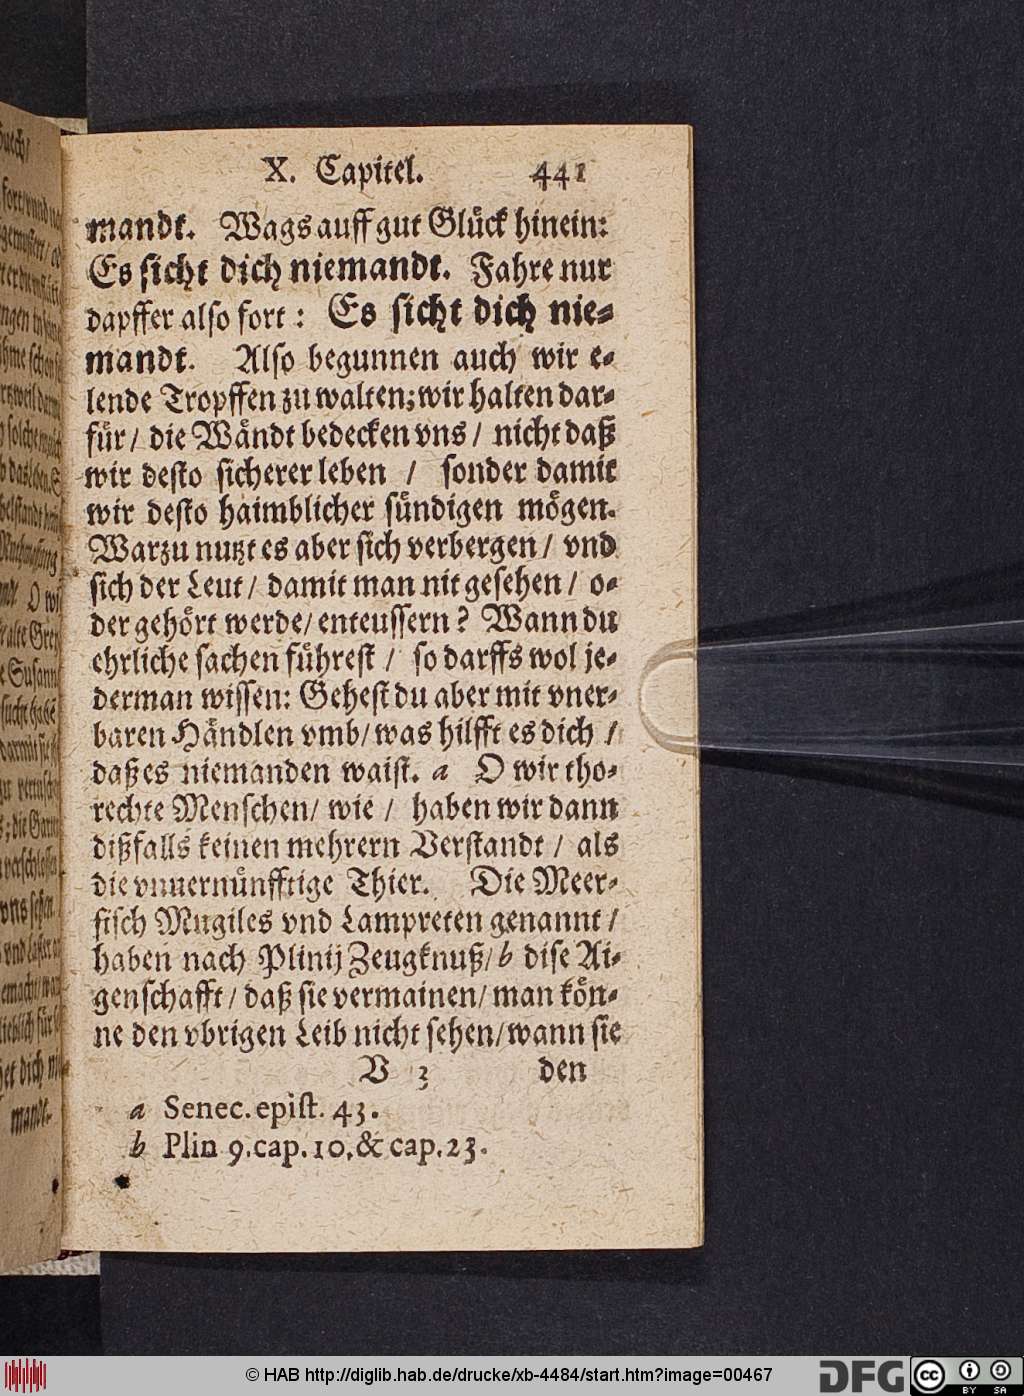 X. Capitel. 441
mandt. Wags auff gut Glück hinein:
Es sicht dich niemandt. Fahre nur
dapffer also fort: Es sicht dich nie-
mandt. Also begunnen auch wir e-
lende Tropffen zu walten; wir halten dar-
für / die Wändt bedecken vns / nicht daß
wir desto sicherer leben / sonder damit
wir desto haimblicher sündigen mögen.
Warzu nutzt es aber sich verbergen / vnd
sich der Leut / damit man nit gesehen / o-
der gehört werde / enteussern? Wann du
ehrliche sachen führest / so darffs wol je-
derman wissen: Gehest du aber mit vner-
baren Händlen vmb / was hilfft es dich /
daß es niemanden waist. a O wir tho-
rechte Menschen / wie / haben wir dann
dißfalls keinen mehrern Verstandt / als
die vnuernünfftige Thier. Die Meer-
fisch Mugiles vnd Lampreten genannt /
haben nach Plinij Zeugknuß / b dise Ai-
genschafft / daß sie vermainen / man kön-
ne den vbrigen Leib nicht sehen / wann sie
V 3 den
a Senec. epist. 43.
b Plin 9. cap. 10. & cap. 23.
© HAB http://diglib.hab.de/drucke/xb-4484/start.htm?image=00467
DFG
cc
BY SA